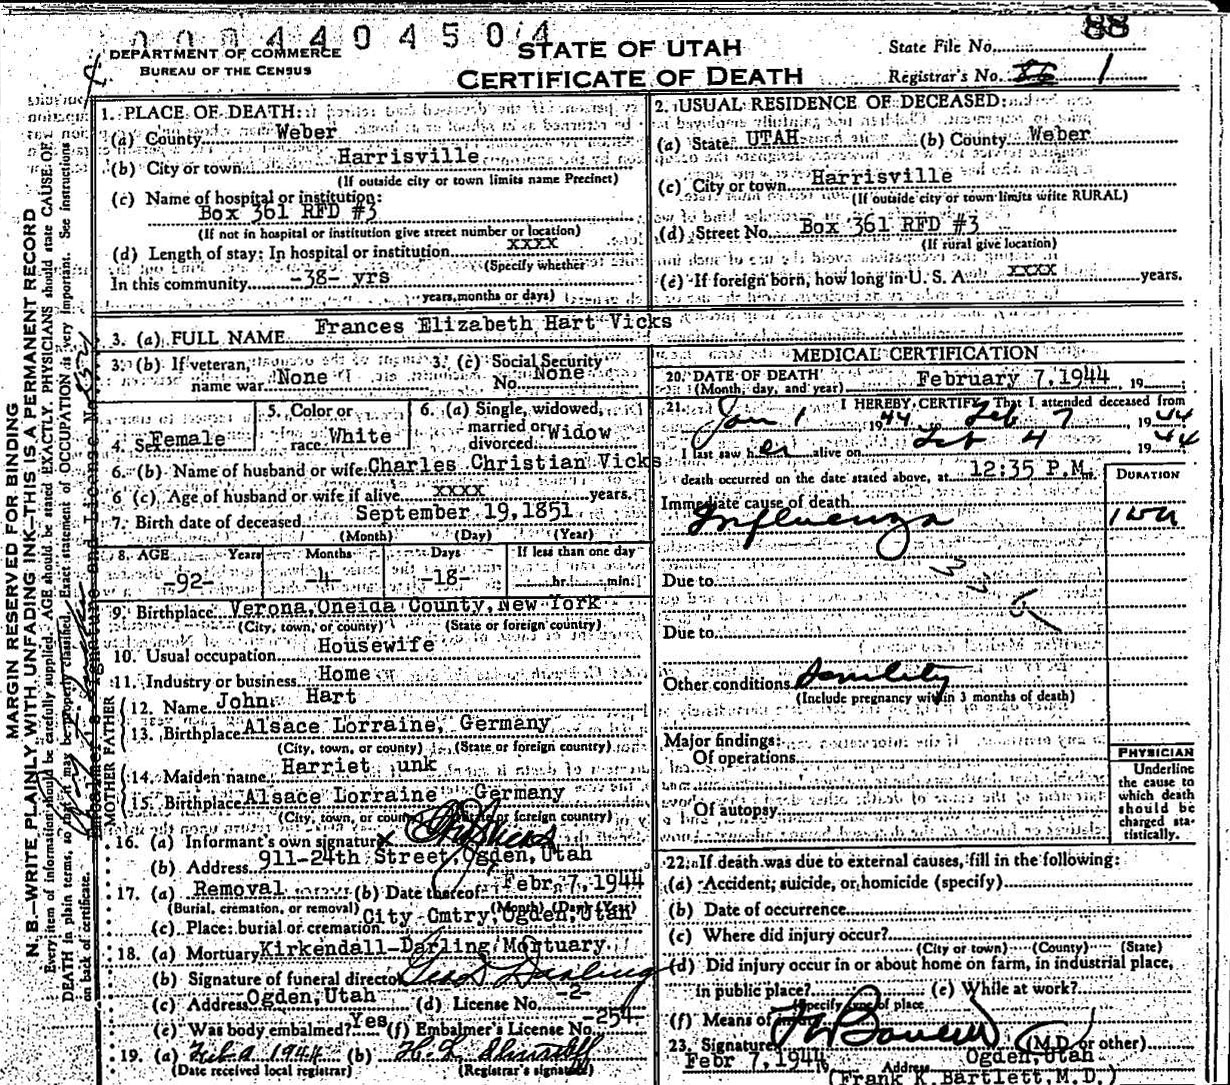 0 0 0 4 4 0 4 5 0 4
88
DEPARTMENT OF COMMERCE
BUREAU OF THE CENSUS
STATE OF UTAH
CERTIFICATE OF DEATH
State File No.
Registrar's No. 1
MARGIN RESERVED FOR BINDING
N. B.—WRITE PLAINLY WITH UNFADING INK—THIS IS A PERMANENT RECORD
Every item of information should be carefully supplied. AGE should be stated EXACTLY. PHYSICIANS should state CAUSE OF
DEATH in plain terms, so that it may be properly classified. Exact statement of OCCUPATION is very important. See instructions
on back of certificate.
1. PLACE OF DEATH:
(a) County Weber
(b) City or town Harrisville
(If outside city or town limits name Precinct)
(c) Name of hospital or institution:
Box 361 RFD #3
(If not in hospital or institution give street number or location)
(d) Length of stay: In hospital or institution xxxx
(Specify whether
In this community -38- yrs
years, months or days)
2. USUAL RESIDENCE OF DECEASED:
(a) State UTAH (b) County Weber
(c) City or town Harrisville
(If outside city or town limits write RURAL)
(d) Street No. Box 361 RFD #3
(If rural give location)
(e) If foreign born, how long in U. S. A. xxxx years.
3. (a) FULL NAME Frances Elizabeth Hart Vicks
3. (b) If veteran, name war None
3. (c) Social Security No. None
4. Sex Female
5. Color or race White
6. (a) Single, widowed, married or divorced Widow
6. (b) Name of husband or wife Charles Christian Vicks
6 (c). Age of husband or wife if alive xxxx years.
7. Birth date of deceased September 19, 1851
(Month) (Day) (Year)
8. AGE Years Months Days If less than one day
-92- -4- -18- hr. min.
9. Birthplace Verona, Oneida County, New York
(City, town, or county) (State or foreign country)
10. Usual occupation Housewife
11. Industry or business Home
FATHER
12. Name John Hart
13. Birthplace Alsace Lorraine, Germany
(City, town, or county) (State or foreign country)
MOTHER
14. Maiden name Harriet unk
15. Birthplace Alsace Lorraine Germany
(City, town, or county) (State or foreign country)
16. (a) Informant's own signature
(b) Address 911-24th Street, Ogden, Utah
17. (a) Removal (b) Date thereof Febr 7, 1944
(Burial, cremation, or removal) (Month) (Day) (Year)
(c) Place: burial or cremation City Cmtry, Ogden, Utah
18. (a) Mortuary Kirkendall-Darling Mortuary
(b) Signature of funeral director
(c) Address Ogden, Utah (d) License No. -2-
(e) Was body embalmed? Yes (f) Embalmer's License No. -254-
19. (a) 1944 (b)
(Date received local registrar) (Registrar's signature)
MEDICAL CERTIFICATION
20. DATE OF DEATH
(Month, day, and year) February 7, 1944, 19
21. I HEREBY CERTIFY, That I attended deceased from
Jan 1 1944 Feb 7, 1944
I last saw her alive on Feb 4, 1944
death occurred on the date stated above, at 12:35 P.M.
DURATION
Immediate cause of death
Influenza
Due to
Due to
Other conditions Senility
(Include pregnancy within 3 months of death)
Major findings:
Of operations
Of autopsy
PHYSICIAN
Underline
the cause to
which death
should be
charged sta-
tistically.
22. If death was due to external causes, fill in the following:
(a) Accident, suicide, or homicide (specify)
(b) Date of occurrence
(c) Where did injury occur?
(City or town) (County) (State)
(d) Did injury occur in or about home on farm, in industrial place,
in public place? (e) While at work?
(Specify type of place
(f) Means of
23. Signature (M.D. or other)
Febr 7, 1944 Address Ogden, Utah
(Frank K. Bartlett, M. D.)